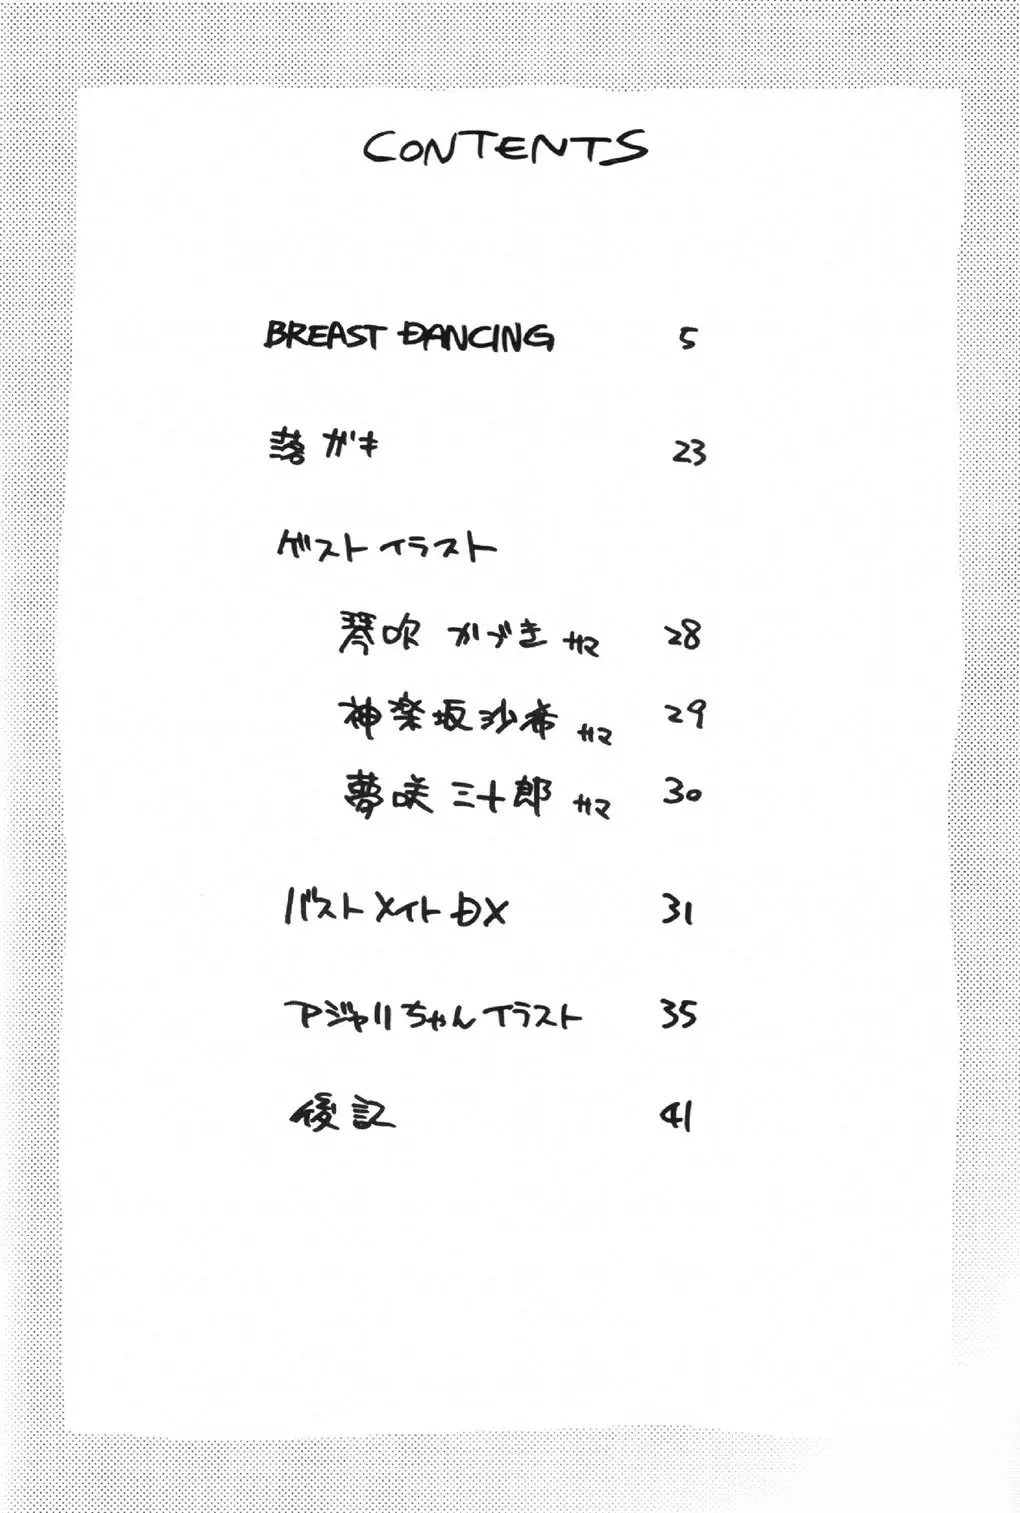 CONTENTS
BREAST DANCING 5
落がき 23
ゲストイラスト
琴吹 かづきサマ 28
神楽坂沙希サマ 29
夢咲三十郎サマ 30
バストメイトDX 31
アジャリちゃんイラスト 35
後記 41